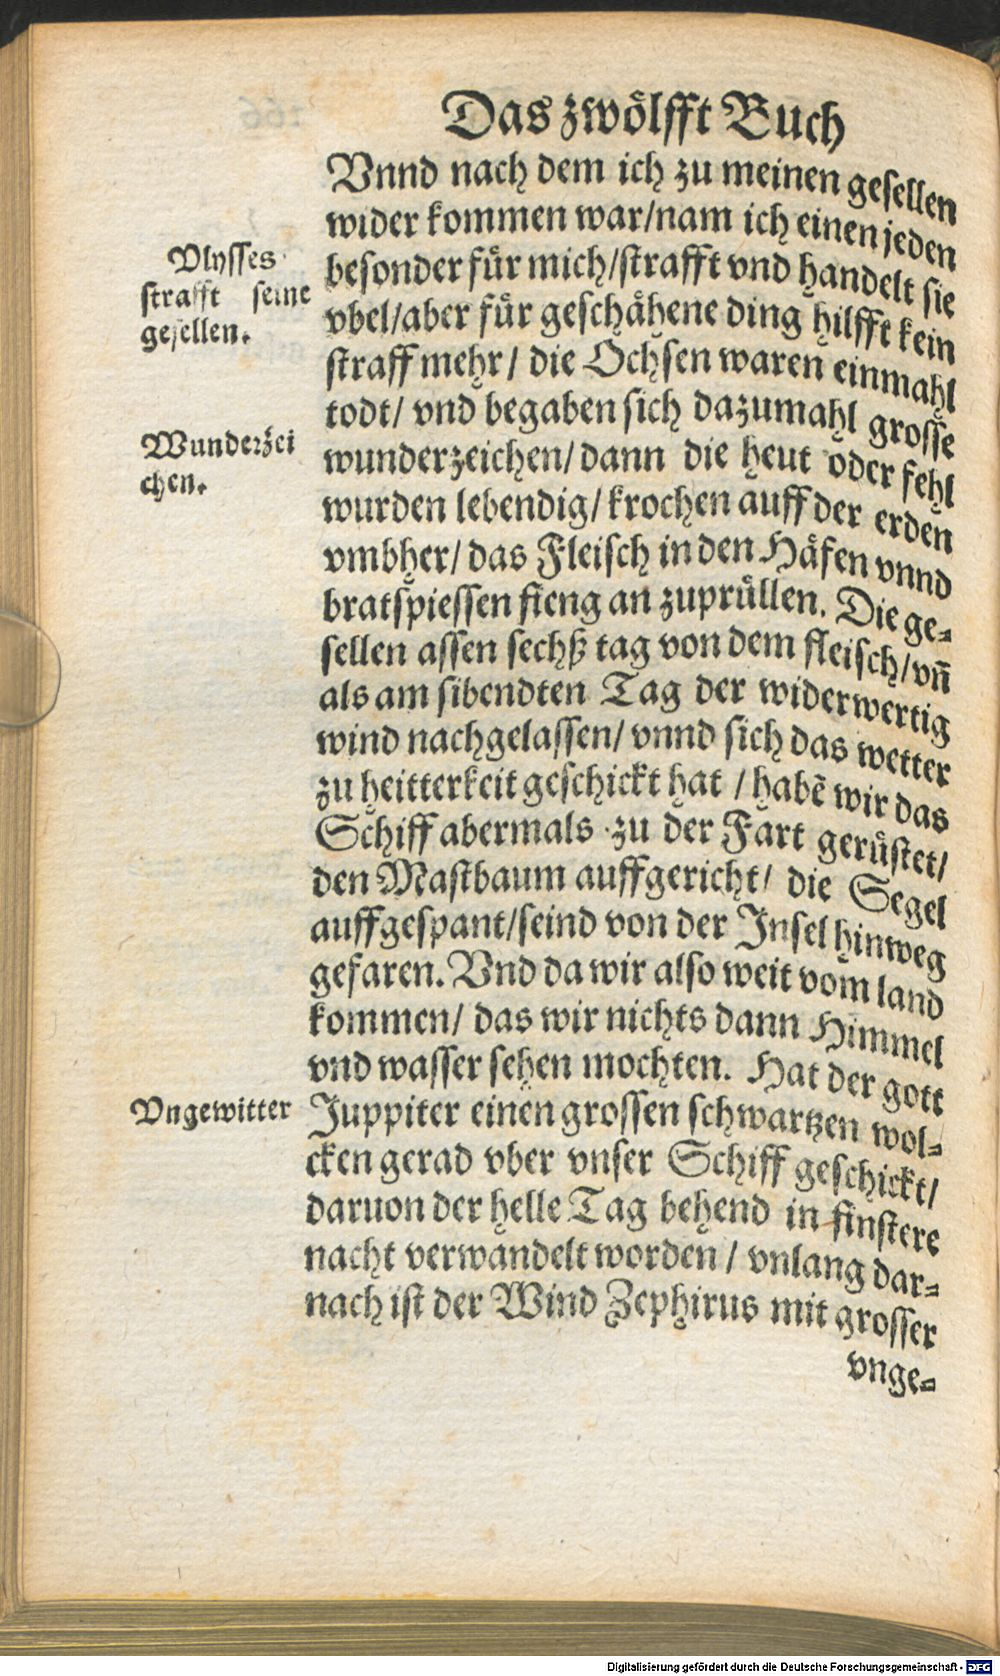 Das zwoͤlfft Buch
Vnnd nach dem ich zu meinen gesellen
wider kommen war/nam ich einen jeden
besonder fuͤr mich/strafft vnd handelt sie
vbel/aber fuͤr geschaͤhene ding hilfft kein
straff mehr/ die Ochsen waren einmahl
todt/ vnd begaben sich dazumahl grosse
wunderzeichen/ dann die heut oder fehl
wurden lebendig/ krochen auff der erden
vmbher/ das Fleisch in den Haͤfen vnnd
bratspiessen fieng an zupruͤllen. Die ge-
sellen assen sechß tag von dem fleisch/ vn̄
als am sibendten Tag der widerwertig
wind nachgelassen/ vnnd sich das wetter
zu heitterkeit geschickt hat / habē wir das
Schiff abermals zu der Fart geruͤstet/
den Mastbaum auffgericht/ die Segel
auffgespant/seind von der Insel hinweg
gefaren. Vnd da wir also weit vom land
kommen/ das wir nichts dann Himmel
vnd wasser sehen mochten. Hat der gott
Juppiter einen grossen schwartzen wol-
cken gerad vber vnser Schiff geschickt/
daruon der helle Tag behend in finstere
nacht verwandelt worden / vnlang dar-
nach ist der Wind Zephirus mit grosser
vnge-
Vlysses
strafft seine
gesellen.
Wunderzei
chen.
Vngewitter
Digitalisierung gefördert durch die Deutsche Forschungsgemeinschaft - DFG